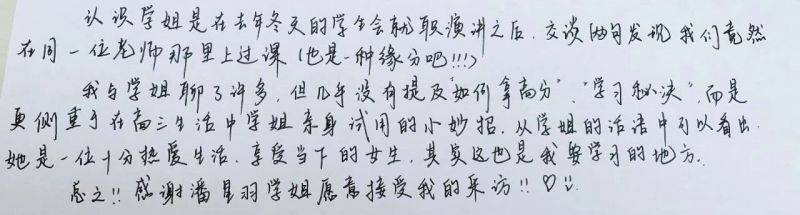 认识学姐是在去年冬天的学生会就职演讲之后，交谈两句发现我们竟然
在同一位老师那里上过课（也是一种缘分吧!!!）
我与学姐聊了许多，但几乎没有提及“如何拿高分”、“学习秘诀”，而是
更侧重于在高三生活中学姐亲身试用的小妙招，从学姐的话语中可以看出，
她是一位十分热爱生活，享受当下的女生，其实这也是我要学习的地方。
总之!!感谢潘星羽学姐愿意接受我的采访!!♡